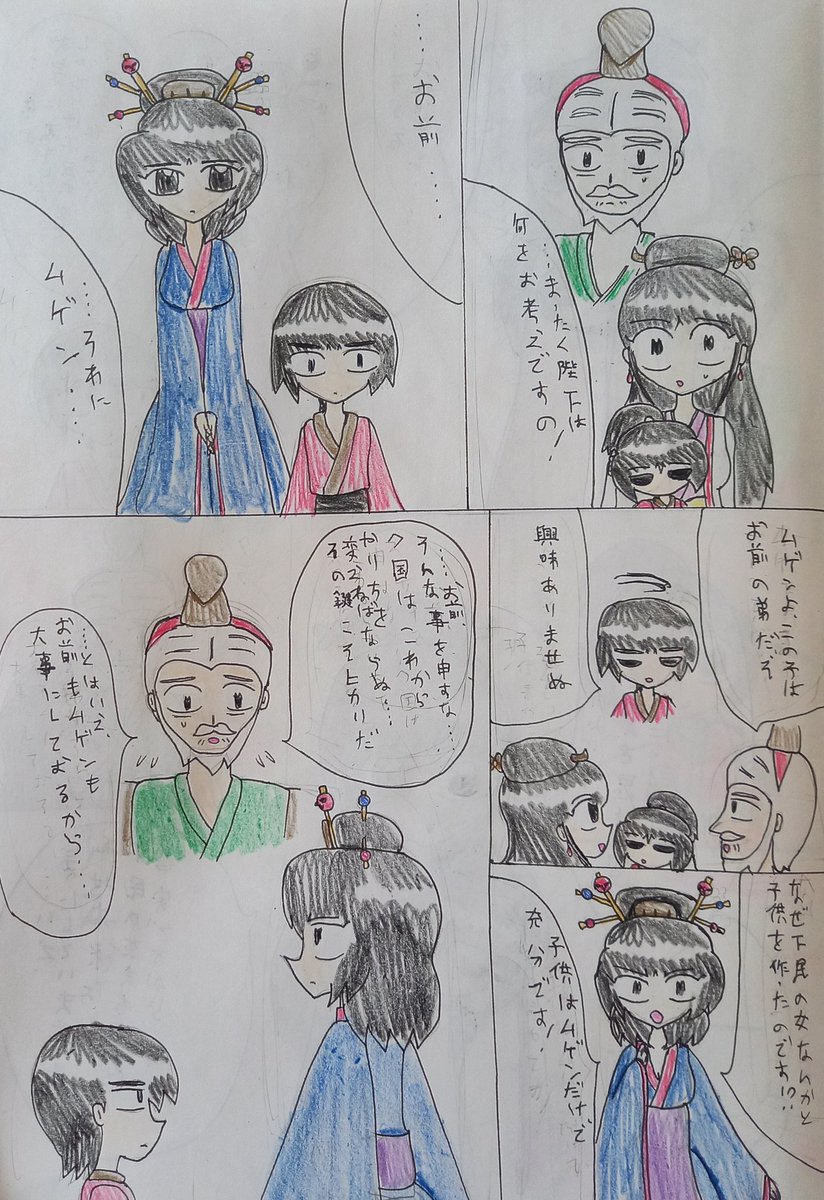 …まったく陛下は
何をお考えですの!
……お前……
……それに
ムゲン……
ムゲンよ、この子は
お前の弟だぞ
興味ありませぬ
なぜ下民の女なんかと
子供を作ったのです!?
子供はムゲンだけで
充分です!
…お前、
そんな事を申すな…
ク国はこれから
やり方を
変えねばならぬ…
その鍵こそ
…とはいえ、
お前もムゲンも
大事にしておるから……